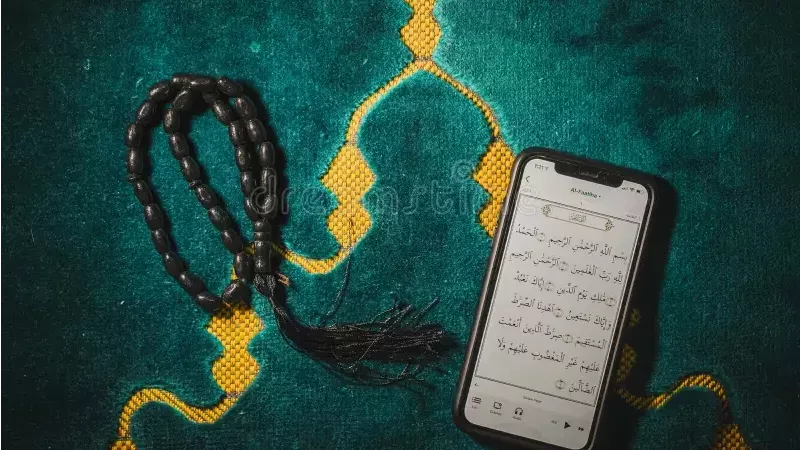 Al-Faatiha
بِسْمِ اللَّهِ الرَّحْمَٰنِ الرَّحِيمِ ۝ الْحَمْدُ
لِلَّهِ رَبِّ الْعَالَمِينَ ۝ الرَّحْمَٰنِ الرَّحِيمِ
۝ مَالِكِ يَوْمِ الدِّينِ ۝ إِيَّاكَ نَعْبُدُ
وَإِيَّاكَ نَسْتَعِينُ ۝ اهْدِنَا الصِّرَاطَ
الْمُسْتَقِيمَ ۝ صِرَاطَ الَّذِينَ أَنْعَمْتَ
عَلَيْهِمْ غَيْرِ الْمَغْضُوبِ عَلَيْهِمْ وَلَا
الضَّالِّينَ ۝
dreamstime